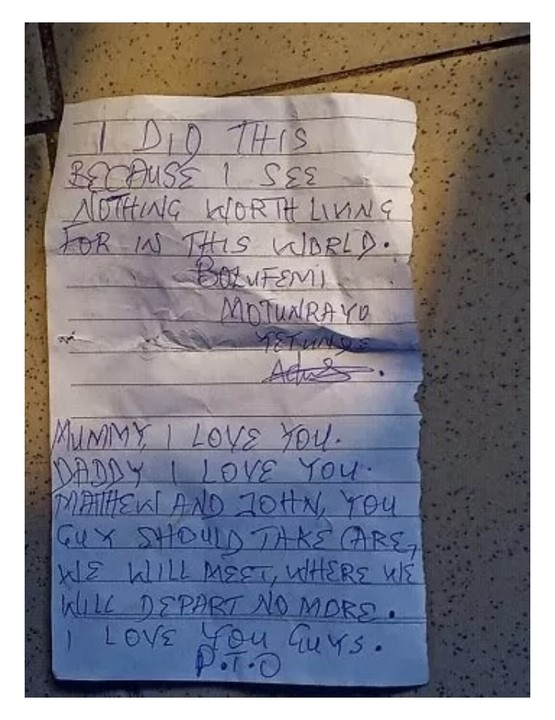 I DID THIS
BECAUSE I SEE
NOTHING WORTH LIVING
FOR IN THIS WORLD.
BOLUFEMI
MOTUNRAYO
YETUNDE
MUMMY, I LOVE YOU.
DADDY I LOVE YOU.
MATHEW AND JOHN, YOU
GUY SHOULD TAKE CARE,
WE WILL MEET, WHERE WE
WILL DEPART NO MORE.
I LOVE YOU GUYS.
P.T.O